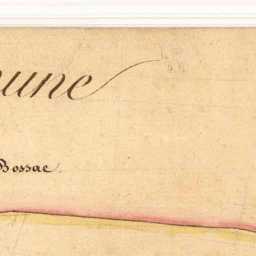 mune
Bossac